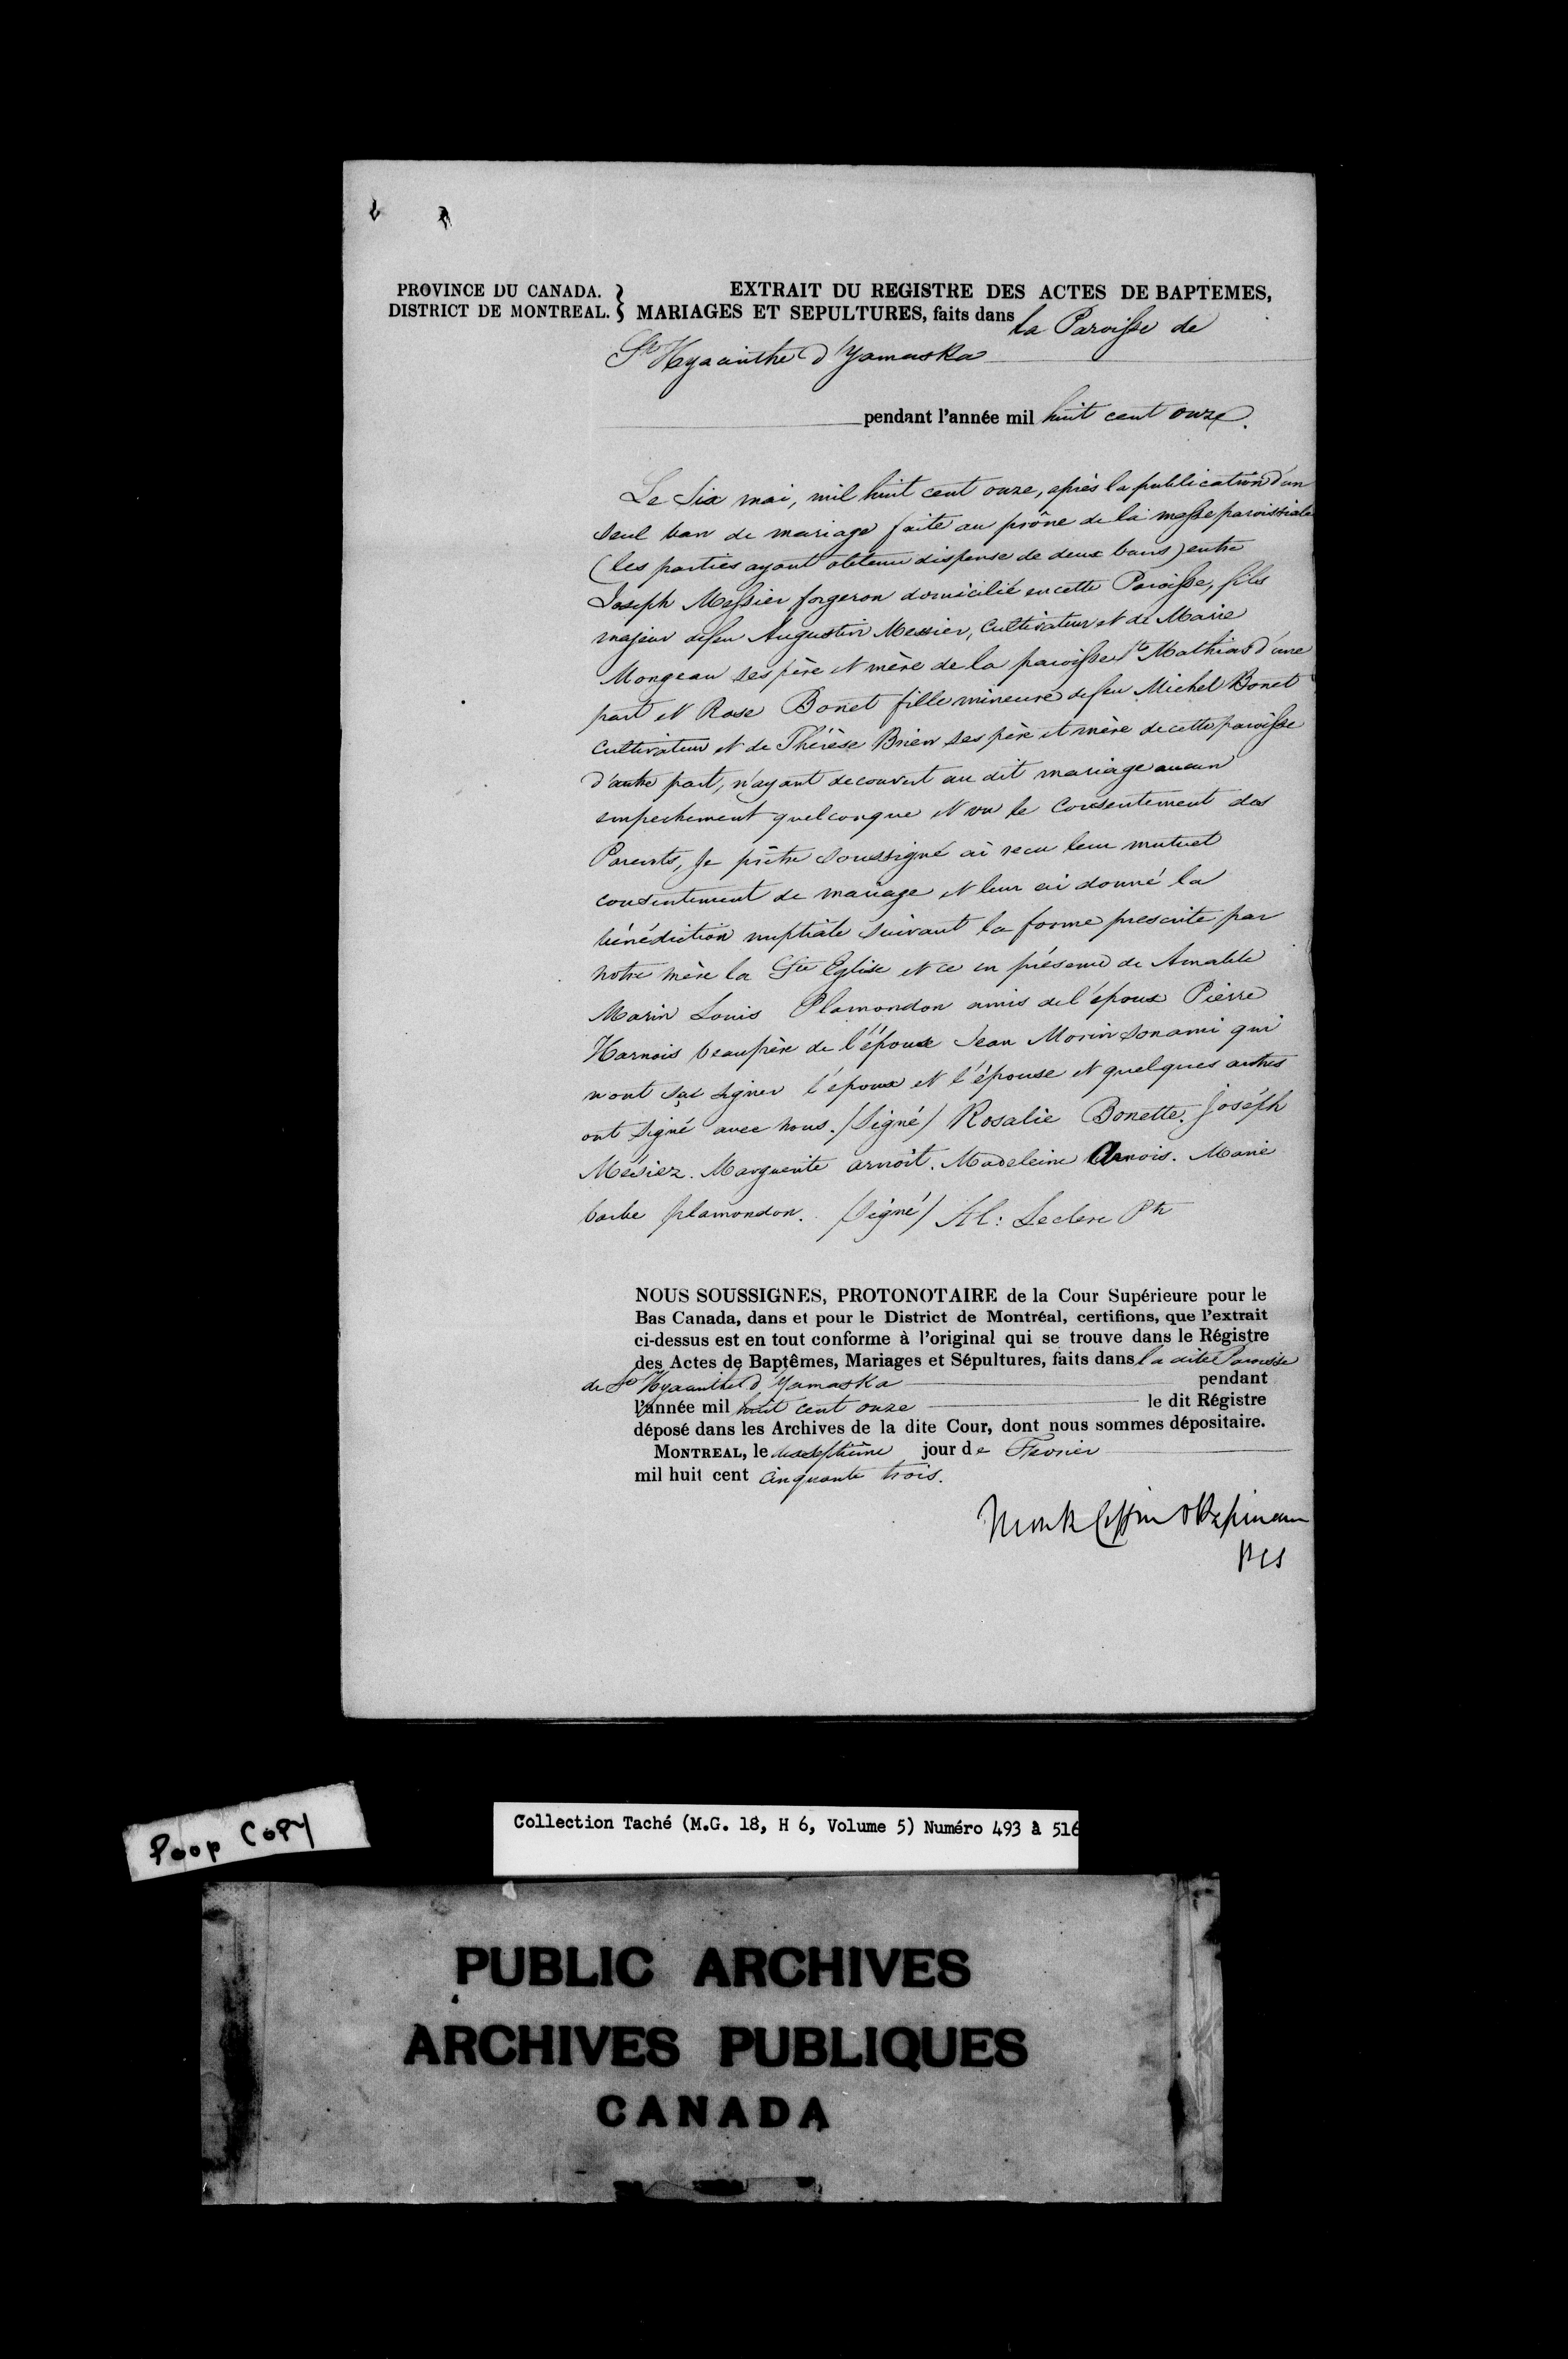 PROVINCE DU CANADA.
DISTRICT DE MONTREAL.
EXTRAIT DU REGISTRE DES ACTES DE BAPTEMES,
MARIAGES ET SEPULTURES, faits dans la Paroisse de
St Hyacinthe d'Yamaska
pendant l'année mil huit cent onze.
Le Six mai, mil huit cent onze, après la publication d'un
seul ban de mariage faite au prône de la messe paroissiale
(les parties ayant obtenu dispense de deux bans) entre
Joseph Messier forgeron domicilié en cette Paroisse, fils
majeur defeu Augustin Messier, Cultivateur et de Marie
Mongeau ses père et mère de la paroisse St Mathias d'une
part et Rose Bonet fille mineure defeu Michel Bonet
Cultivateur et de Thérèse Brien ses père et mère de cette paroisse
d'autre part, n'ayant decouvert au dit mariage aucun
empechement quelconque et vu le Consentement des
Parents, Je prêtre Soussigné ai recu leur mutuel
consentement de mariage et leur ai donné la
bénédiction nuptiale suivant la forme prescrite par
notre mère la Ste Eglise et ce en présence de Amable
Marin Louis Plamondon amis de l'époux Pierre
Harnois beaupère de l'épouse Jean Morin son ami qui
n'ont sçu signer l'époux et l'épouse et quelques autres
ont signé avec nous. (Signé) Rosalie Bonette. Joséph
Mésiez. Marguerite arnoit. Madeleine Arnois. Marie
barbe plamondon. (Signé) Al: Leclerc Ptr
NOUS SOUSSIGNES, PROTONOTAIRE de la Cour Supérieure pour le
Bas Canada, dans et pour le District de Montréal, certifions, que l'extrait
ci-dessus est en tout conforme à l'original qui se trouve dans le Régistre
des Actes de Baptêmes, Mariages et Sépultures, faits dans la dite Paroisse
de St Hyacinthe d'Yamaska pendant
l'année mil huit cent onze le dit Régistre
déposé dans les Archives de la dite Cour, dont nous sommes dépositaire.
MONTREAL, le dixseptième jour de Fevrier
mil huit cent cinquante trois.
Monk Coffin & Papineau
PCS
Poor COPY
Collection Taché (M.G. 18, H 6, Volume 5) Numéro 493 à 516
PUBLIC ARCHIVES
ARCHIVES PUBLIQUES
CANADA